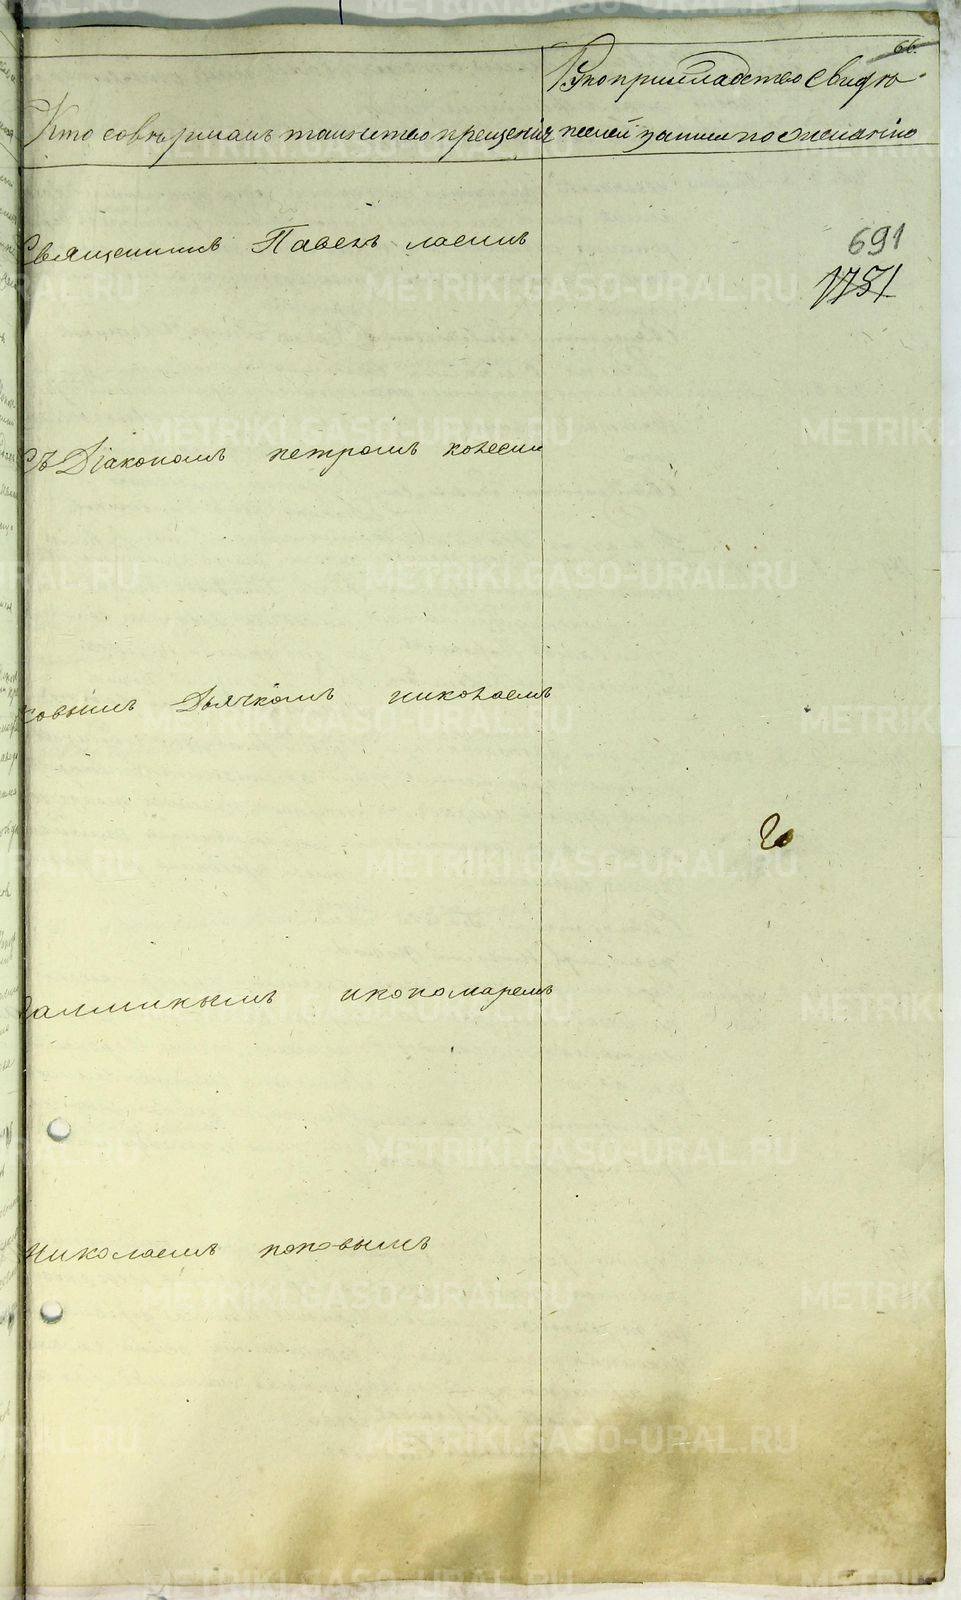 66.
Рукоприкладство свидѣ-
Кто совершалъ таинство крещенія
телей записи по желанію
Священникъ Павелъ
691
1751
Съ Діакономъ петромъ
Дьячкомъ николаемъ
ипономаремъ
николаемъ поповымъ
METRIKI.GASO-URAL.RU